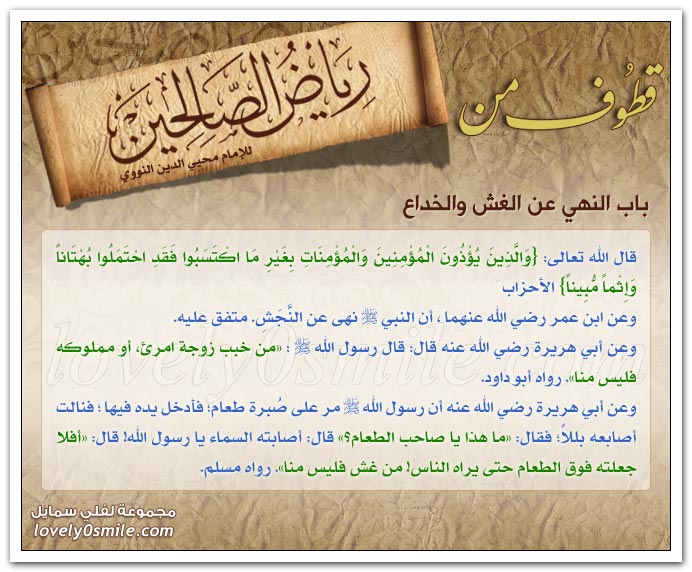 قطوف من
رِيَاضُ الصَّالِحِين
للإمام محيي الدين النووي
باب النهي عن الغش والخداع
قال الله تعالى: {وَالَّذِينَ يُؤْذُونَ الْمُؤْمِنِينَ وَالْمُؤْمِنَاتِ بِغَيْرِ مَا اكْتَسَبُوا فَقَدِ احْتَمَلُوا بُهْتَاناً
وَإِثْماً مُّبِيناً} الأحزاب
وعن ابن عمر رضي الله عنهما ، أن النبي ﷺ نهى عن النَّجَشِ. متفق عليه.
وعن أبي هريرة رضي الله عنه قال: قال رسول الله ﷺ : «من خبب زوجة امرئ، أو مملوكه
فليس منا». رواه أبو داود.
وعن أبي هريرة رضي الله عنه أن رسول الله ﷺ مر على صُبرة طعام؛ فأدخل يده فيها ؛ فنالت
أصابعه بللاً؛ فقال: «ما هذا يا صاحب الطعام؟» قال: أصابته السماء يا رسول الله! قال: «أفلا
جعلته فوق الطعام حتى يراه الناس! من غش فليس منا». رواه مسلم.
lovely0smile.com
مجموعة لفلي سمايل
lovely0smile.com